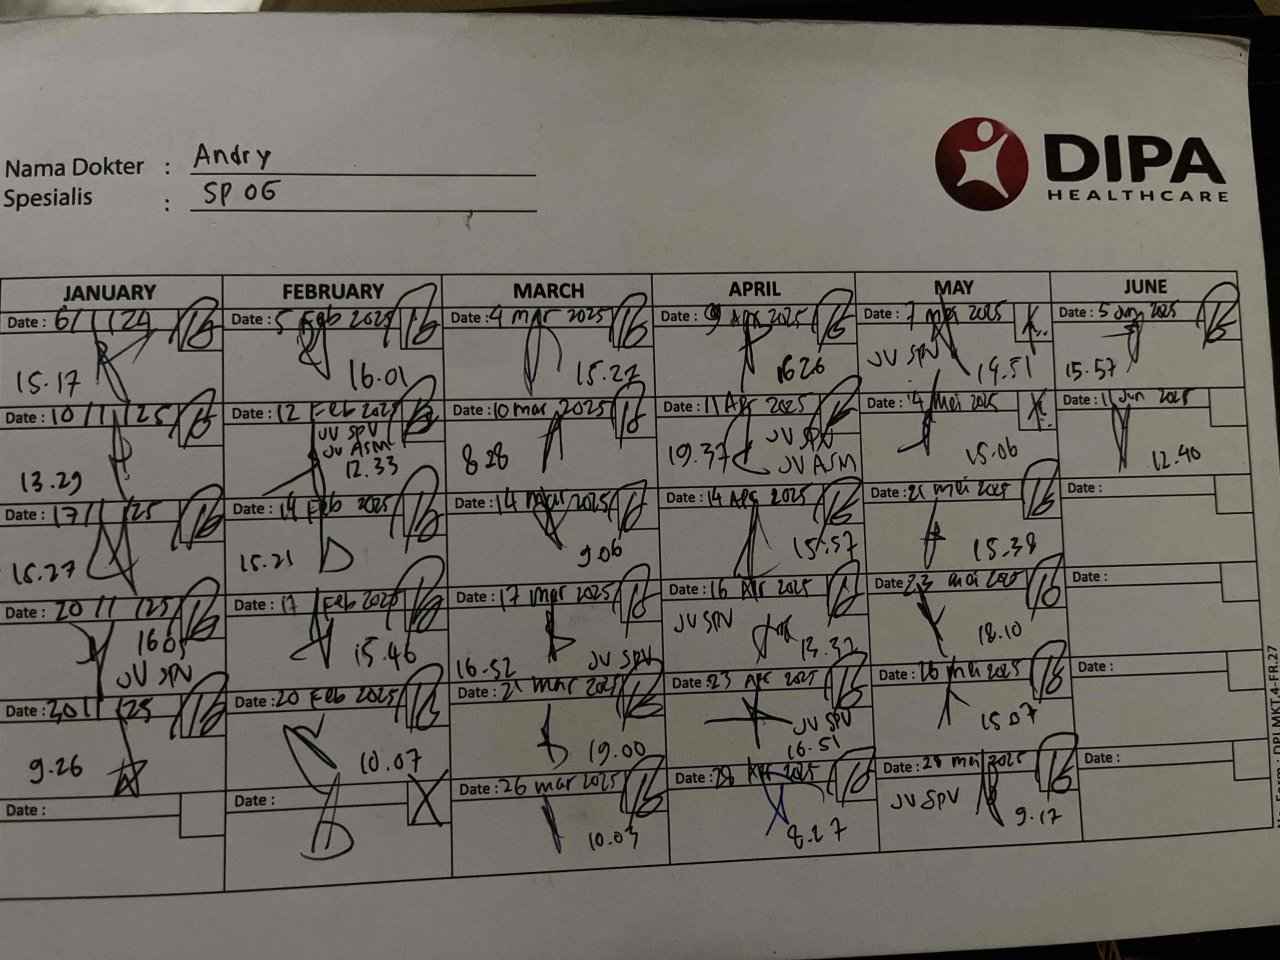 Nama Dokter : Andry
Spesialis : SP OG
DIPA
HEALTHCARE
JANUARY
Date : 6/1/24
15.17
Date : 10/1/25
13.29
Date : 17/1/25
15.27
Date : 20/1/25
JV SPV
Date :
9.26
Date :
FEBRUARY
Date : 5 Feb 2025
16.01
Date : 12 Feb 2025
JV SPV
JV ASM
12.33
Date : 14 Feb 2025
15.21
Date : 17 Feb 2025
15.46
Date : 20 Feb 2025
10.07
Date :
MARCH
Date : 4 mar 2025
15.27
Date : 10 mar 2025
8 28
Date : 14 mar 2025
9.06
Date : 17 mar 2025
16.52 JV SPV
Date : 21 mar 2025
19.00
Date : 26 mar 2025
10.03
APRIL
Date : 9 Apr 2025
16 26
Date : 11 Apr 2025
JV SPV
19.37 JV ASM
Date : 14 Apr 2025
15.57
Date : 16 Apr 2025
JV SPV
13.32
Date : 23 Apr 2025
JV SPV
16.51
Date : 28 Apr 2025
8.27
MAY
Date : 7 mei 2025
JV SPV
14.51
Date : 14 Mei 2025
15.06
Date : 21 mei 2025
15.38
Date 23 mei 2025
18.10
Date : 26 mei 2025
15.07
Date : 28 mei 2025
JV SPV 9.17
JUNE
Date : 5 Jun 2025
15.57
Date : 11 Jun 2025
12.40
Date :
Date :
Date :
Date :